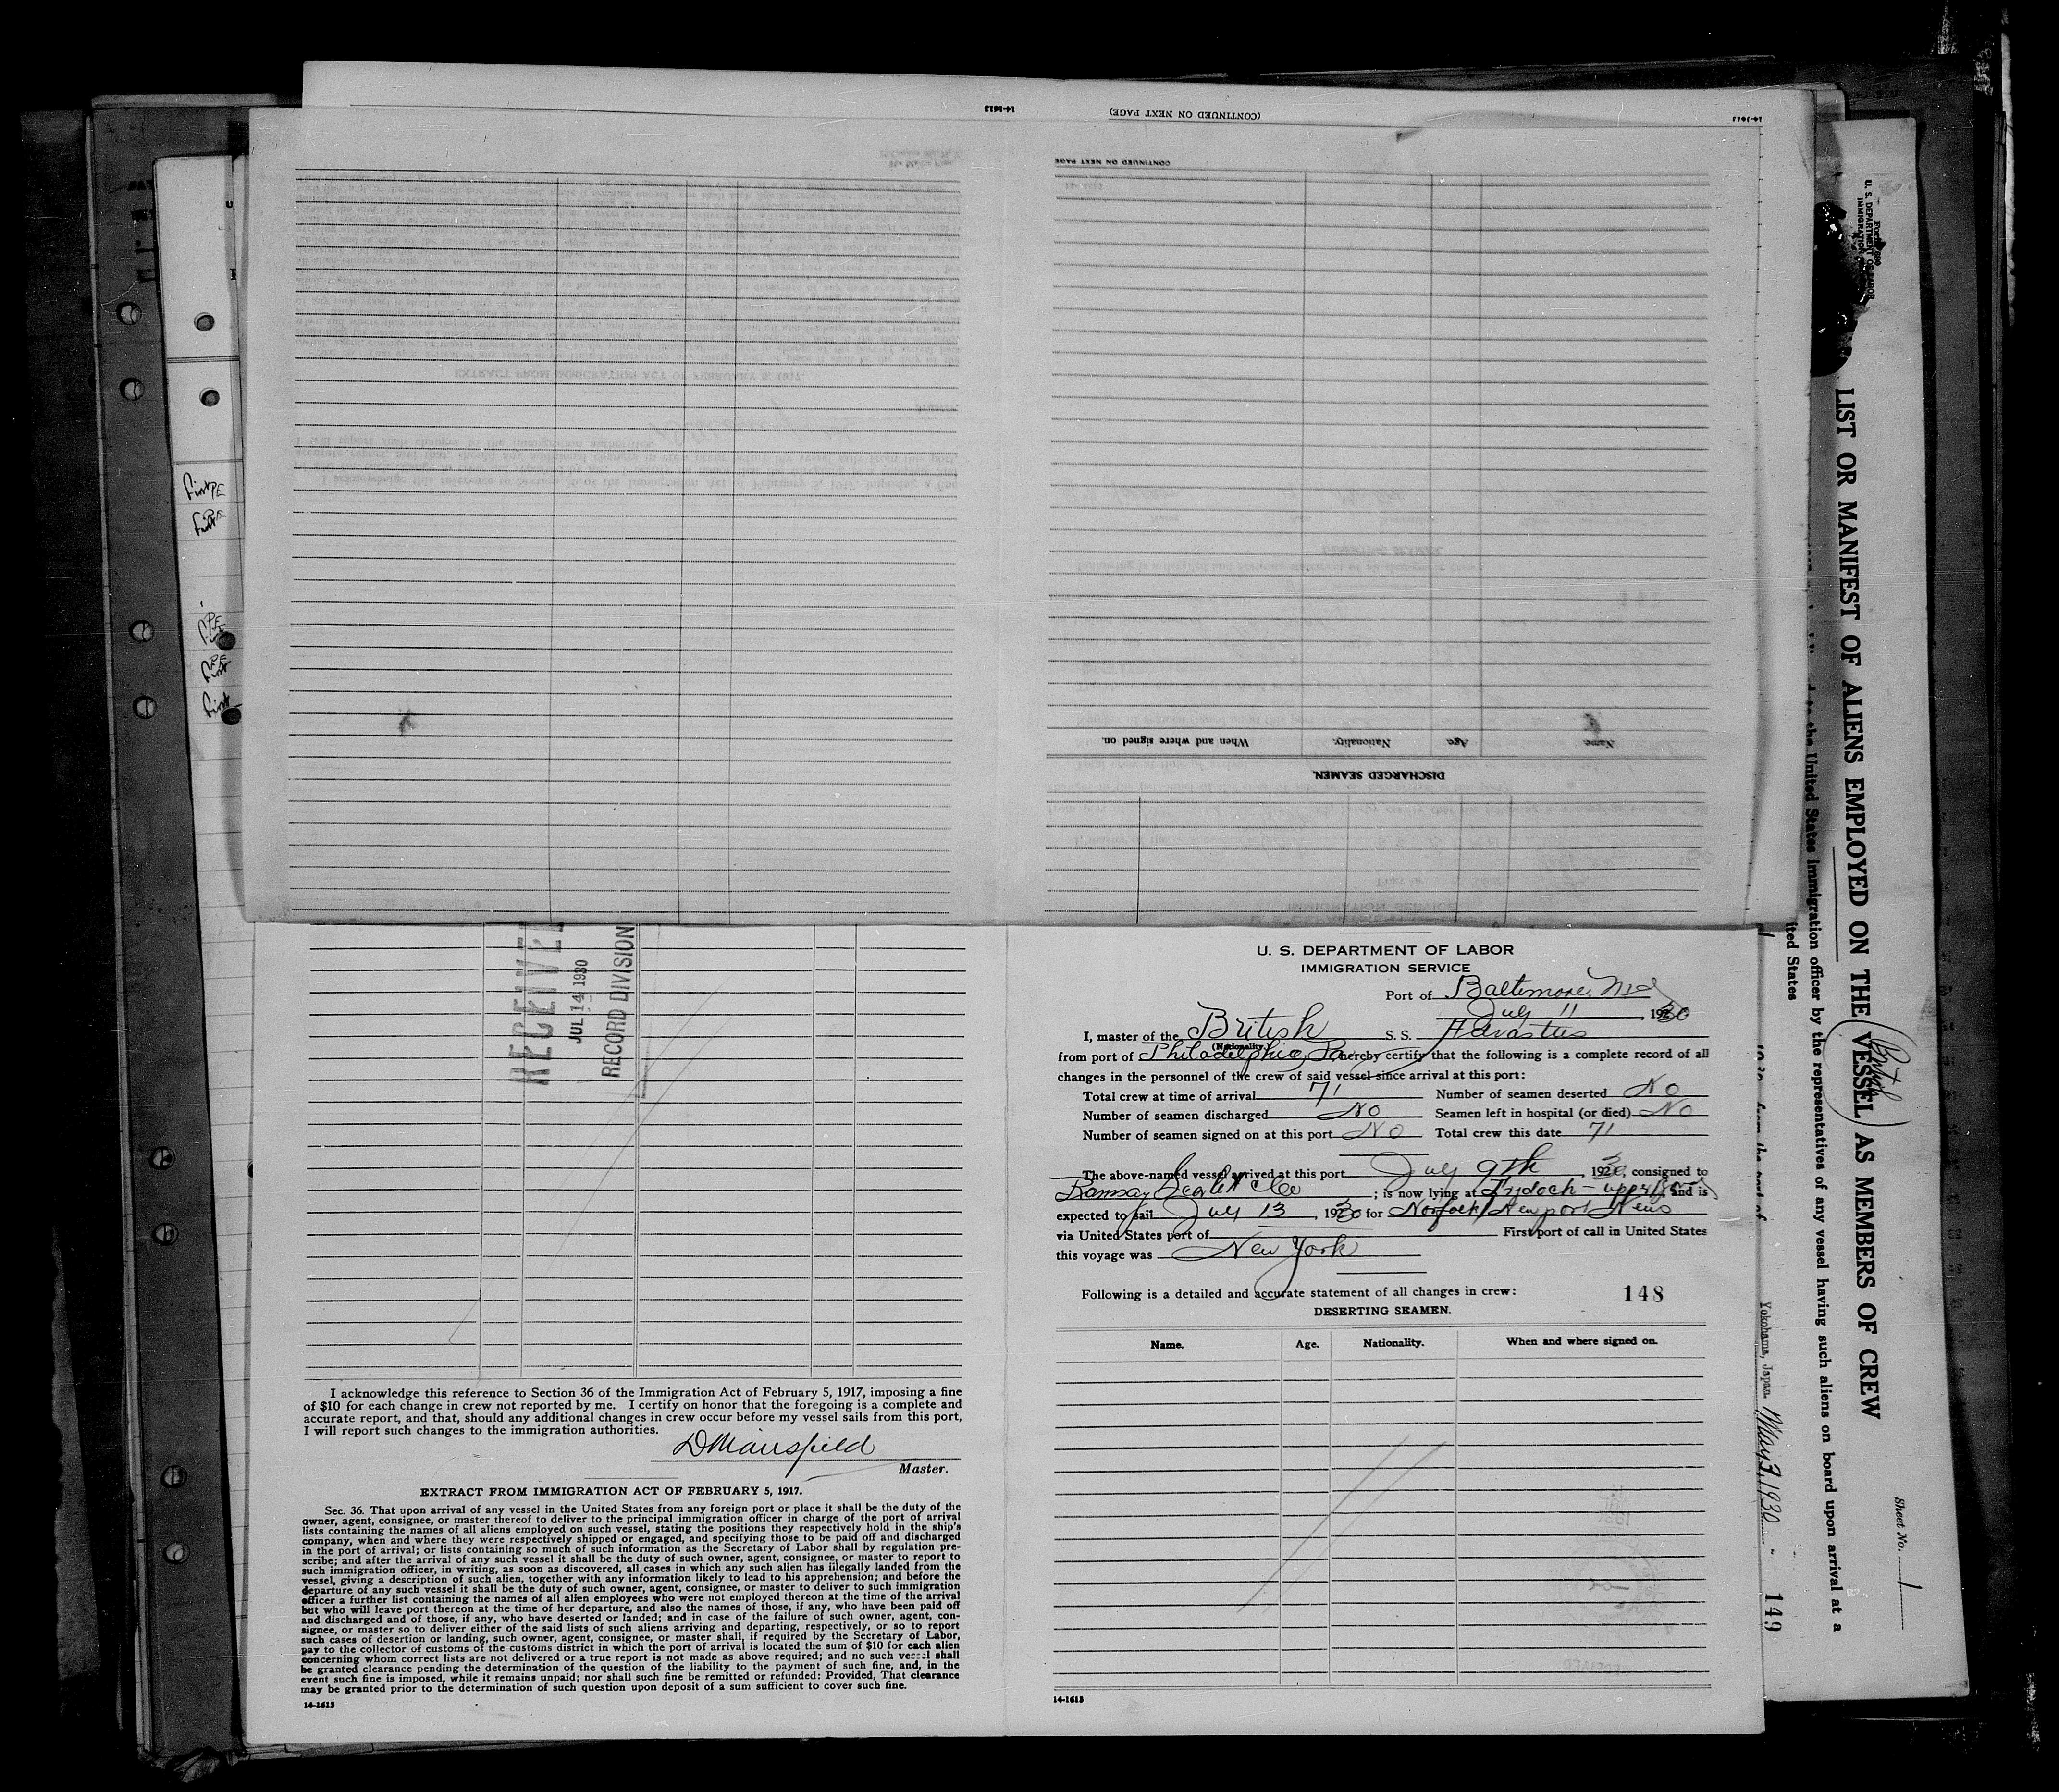 14-1613
(CONTINUED ON NEXT PAGE)
14-1613
CONTINUED ON NEXT PAGE
When and where signed on.
Nationality.
Age.
Name.
DISCHARGED SEAMEN.
First PE
First PE
PE
First PE
First
RECEIVED
JUL 14 1930
RECORD DIVISION
I acknowledge this reference to Section 36 of the Immigration Act of February 5, 1917, imposing a fine
of $10 for each change in crew not reported by me. I certify on honor that the foregoing is a complete and
accurate report, and that, should any additional changes in crew occur before my vessel sails from this port,
I will report such changes to the immigration authorities.
D Mansfield
Master.
EXTRACT FROM IMMIGRATION ACT OF FEBRUARY 5, 1917.
Sec. 36. That upon arrival of any vessel in the United States from any foreign port or place it shall be the duty of the
owner, agent, consignee, or master thereof to deliver to the principal immigration officer in charge of the port of arrival
lists containing the names of all aliens employed on such vessel, stating the positions they respectively hold in the ship's
company, when and where they were respectively shipped or engaged, and specifying those to be paid off and discharged
in the port of arrival; or lists containing so much of such information as the Secretary of Labor shall by regulation pre-
scribe; and after the arrival of any such vessel it shall be the duty of such owner, agent, consignee, or master to report to
such immigration officer, in writing, as soon as discovered, all cases in which any such alien has illegally landed from the
vessel, giving a description of such alien, together with any information likely to lead to his apprehension; and before the
departure of any such vessel it shall be the duty of such owner, agent, consignee, or master to deliver to such immigration
officer a further list containing the names of all alien employees who were not employed thereon at the time of the arrival
but who will leave port thereon at the time of her departure, and also the names of those, if any, who have been paid off
and discharged and of those, if any, who have deserted or landed; and in case of the failure of such owner, agent, con-
signee, or master so to deliver either of the said lists of such aliens arriving and departing, respectively, or so to report
such cases of desertion or landing, such owner, agent, consignee, or master shall, if required by the Secretary of Labor,
pay to the collector of customs of the customs district in which the port of arrival is located the sum of $10 for each alien
concerning whom correct lists are not delivered or a true report is not made as above required; and no such vessel shall
be granted clearance pending the determination of the question of the liability to the payment of such fine, and, in the
event such fine is imposed, while it remains unpaid; nor shall such fine be remitted or refunded: Provided, That clearance
may be granted prior to the determination of such question upon deposit of a sum sufficient to cover such fine.
14-1613
U. S. DEPARTMENT OF LABOR
IMMIGRATION SERVICE
Port of Baltimore, Md
July 11, 1930
I, master of the British S. S.
(Nationality.)
from port of Philadelphia, Pa hereby certify that the following is a complete record of all
changes in the personnel of the crew of said vessel since arrival at this port:
Total crew at time of arrival 71 Number of seamen deserted No
Number of seamen discharged No Seamen left in hospital (or died) No
Number of seamen signed on at this port No Total crew this date 71
The above-named vessel arrived at this port July 9th, 1930, consigned to
Ramsay Scarlett & Co; is now lying at Drydock - upper and is
expected to sail July 13, 1930 for Norfolk/Newport News
via United States port of First port of call in United States
this voyage was New York
Following is a detailed and accurate statement of all changes in crew: 148
DESERTING SEAMEN.
Name. Age. Nationality. When and where signed on.
14-1613
U. S. DEPARTMENT OF LABOR
IMMIGRATION
LIST OR MANIFEST OF ALIENS EMPLOYED ON THE VESSEL AS MEMBERS OF CREW
British
to the United States immigration officer by the representatives of any vessel having such aliens on board upon arrival at a
ited States
from the port of
Yokohama, Japan May 3, 1930
149
Sheet No. 1